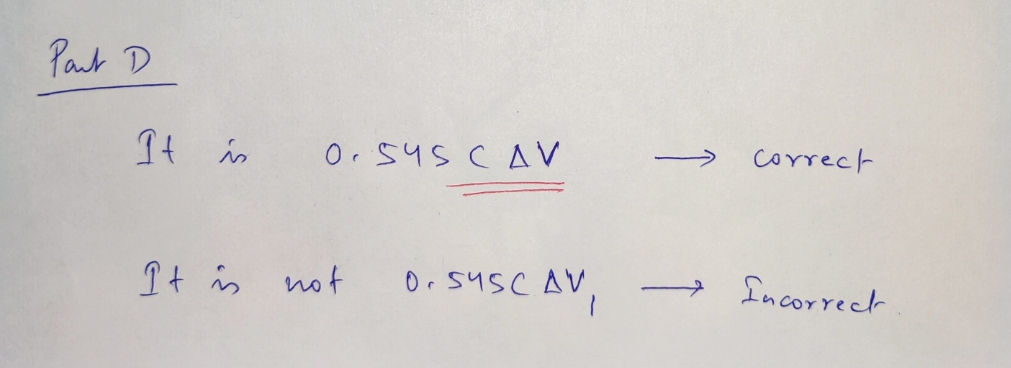 Part D
It is 0.545 C ΔV → correct
It is not 0.545C ΔV, → Incorrect